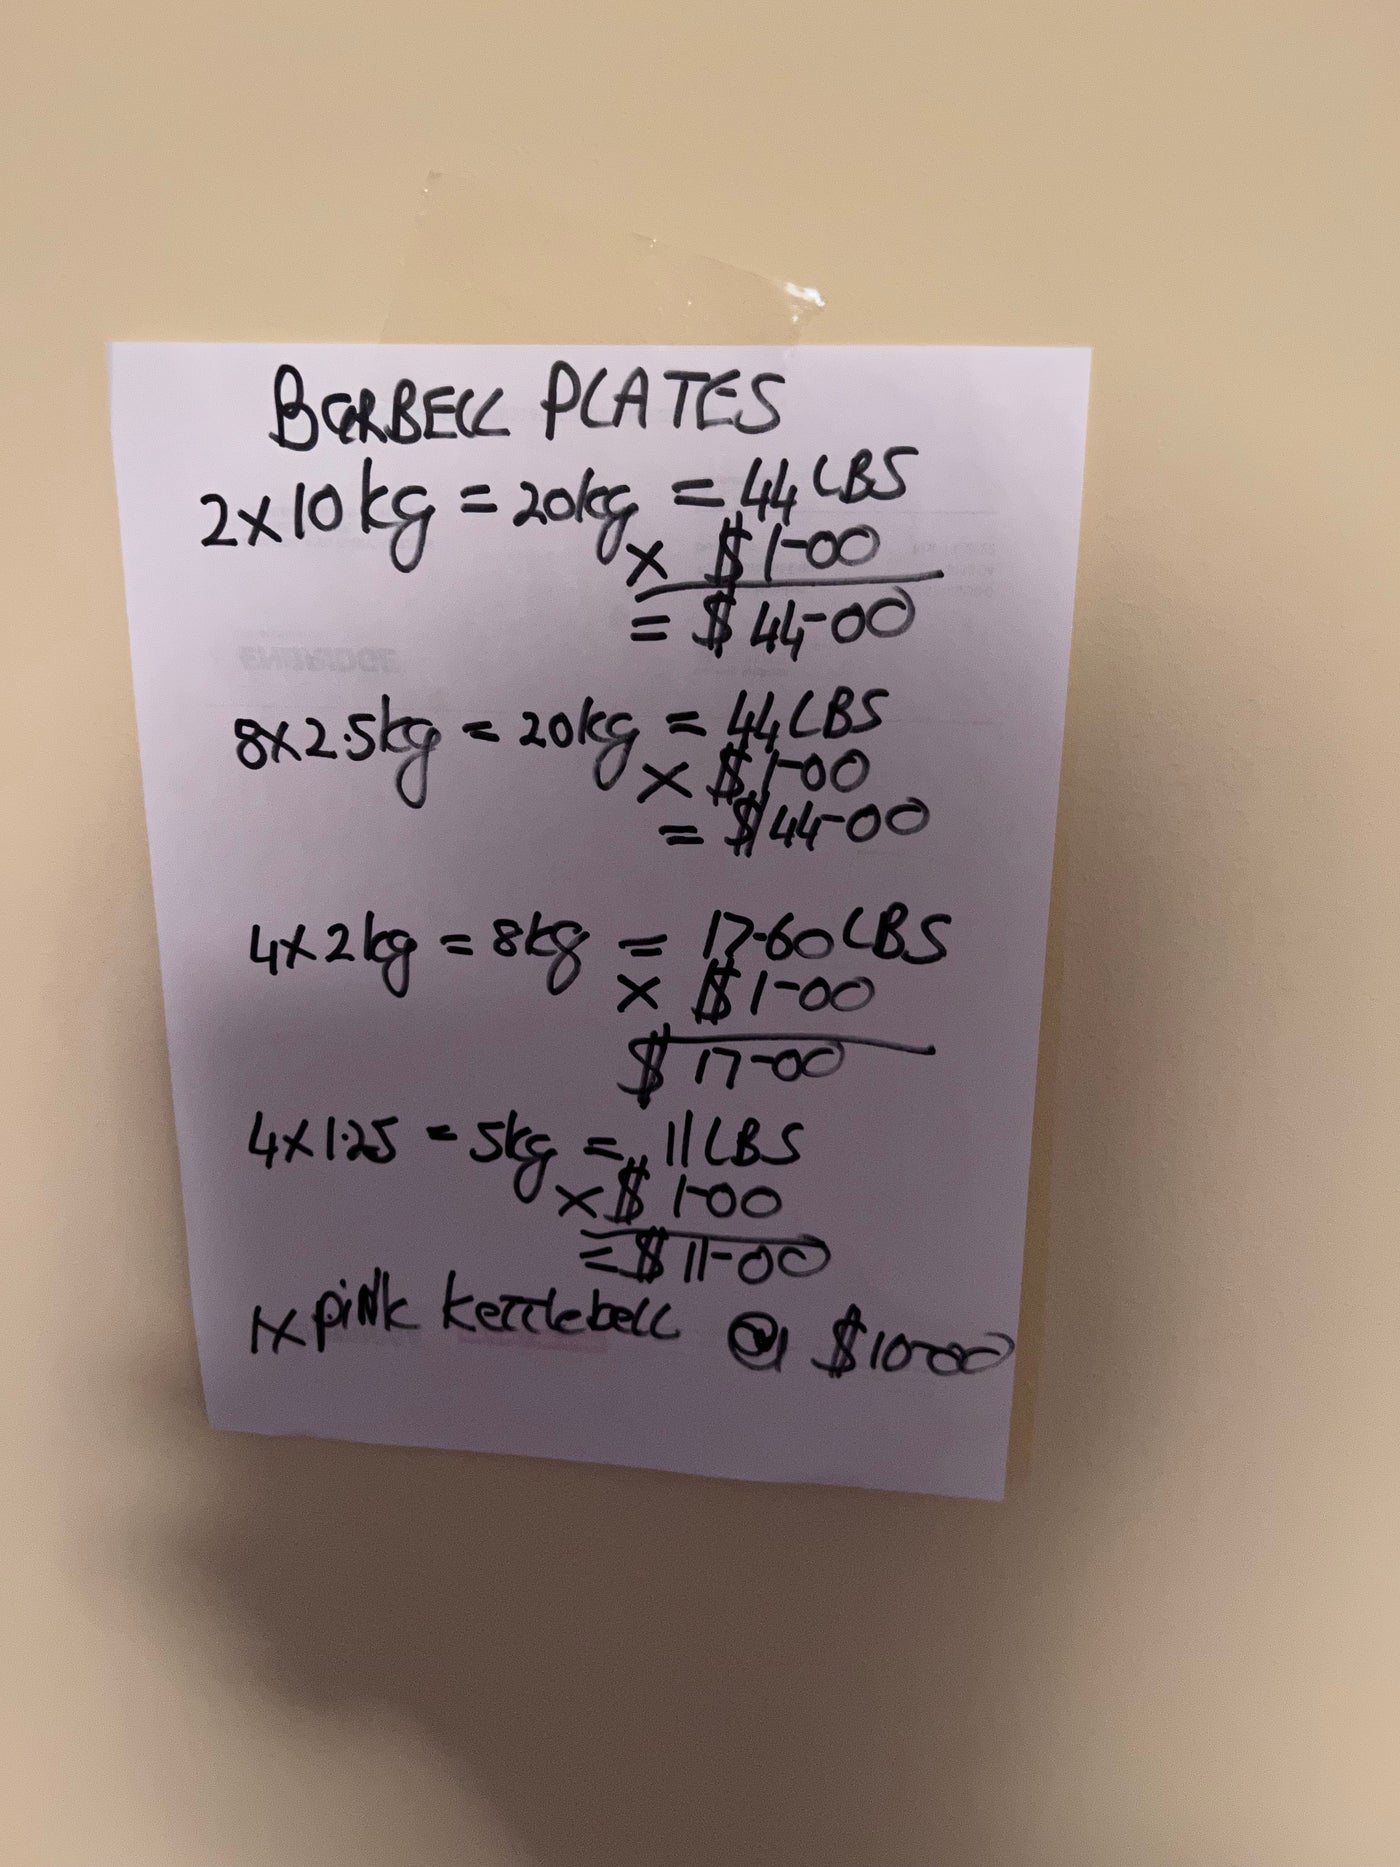 BARBELL PLATES
2x10kg = 20kg = 44 LBS
x $1-00
= $44-00
8x2.5kg = 20kg = 44 LBS
x $1-00
= $44-00
4x2kg = 8kg = 17-60 LBS
x $1-00
$17-00
4x1.25 = 5kg = 11 LBS
x $1-00
= $11-00
1x piNk kettlebell @ $10-00